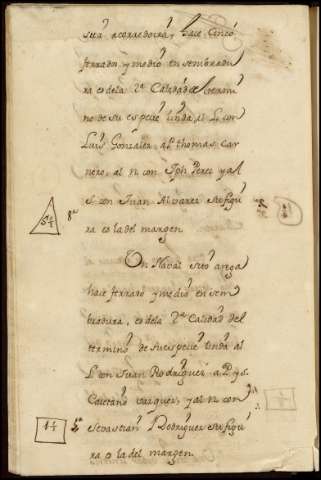 sita acorredoira, hace Cinco
ferrados y medio en sembradu
ra es dela 2ª Calidad del termi
no de su especie linda al L con
Luis Gonzalez, al P thomas Car
nero, al N con Jph Perez y al
S con Juan Alvarez su figu
ra es la del margen.
5 ½ 8º
Un Naval sito arega
hace ferrado y medio en sem
bradura, es dela 2ª Calidad del
termino de su especie linda al
L con Juan Rodriguez a P y S
Caietano vazquez, y al N con
1 ½ Sebastian Rodriguez su figu
ra es la del margen.